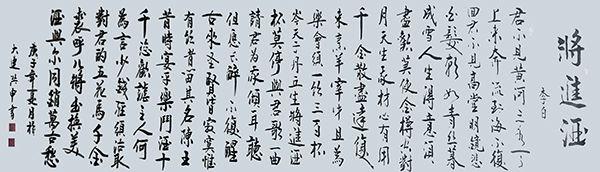 將進酒
李白
君不見黃河之水天
上來奔流到海不復
回君不見高堂明鏡悲
白髮朝如青絲暮
成雪人生得意須
盡歡莫使金樽空對
月天生我材必有用
千金散盡還復
來烹羊宰牛且為
樂會須一飲三百杯
岑夫子丹丘生將進酒
杯莫停與君歌一曲
請君為我傾耳聽
但願長醉不復醒
古來聖賢皆寂寞惟
有飲者留其名陳王
昔時宴平樂斗酒十
千恣歡謔主人何
為言少錢徑須沽取
對君酌五花馬千金
裘呼兒將出換美
酒與爾同銷萬古愁
庚子年夏月於
大連